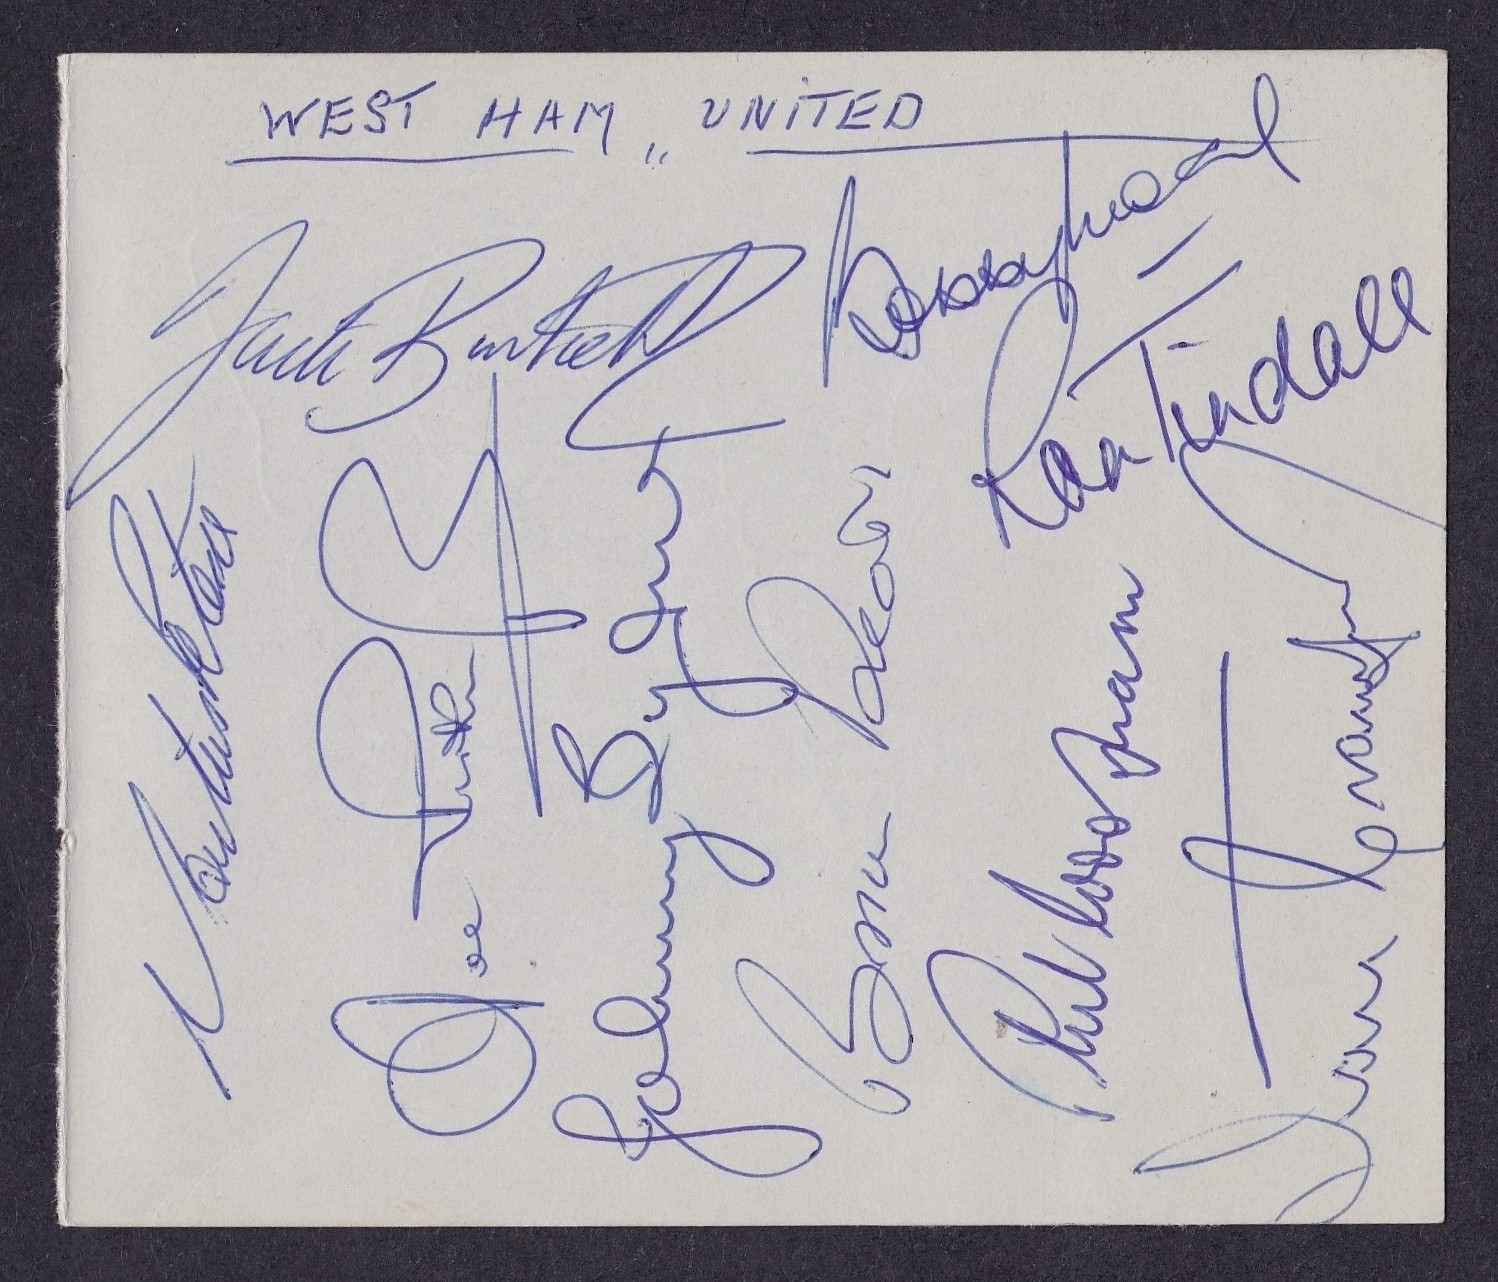 WEST HAM ,, UNITED
Jack Burkett
Bobby Moore
Ron Tindall
Martin Peters
Joe Kirkup
Johnny Byrne
Brian Dear
Phil Woosnam